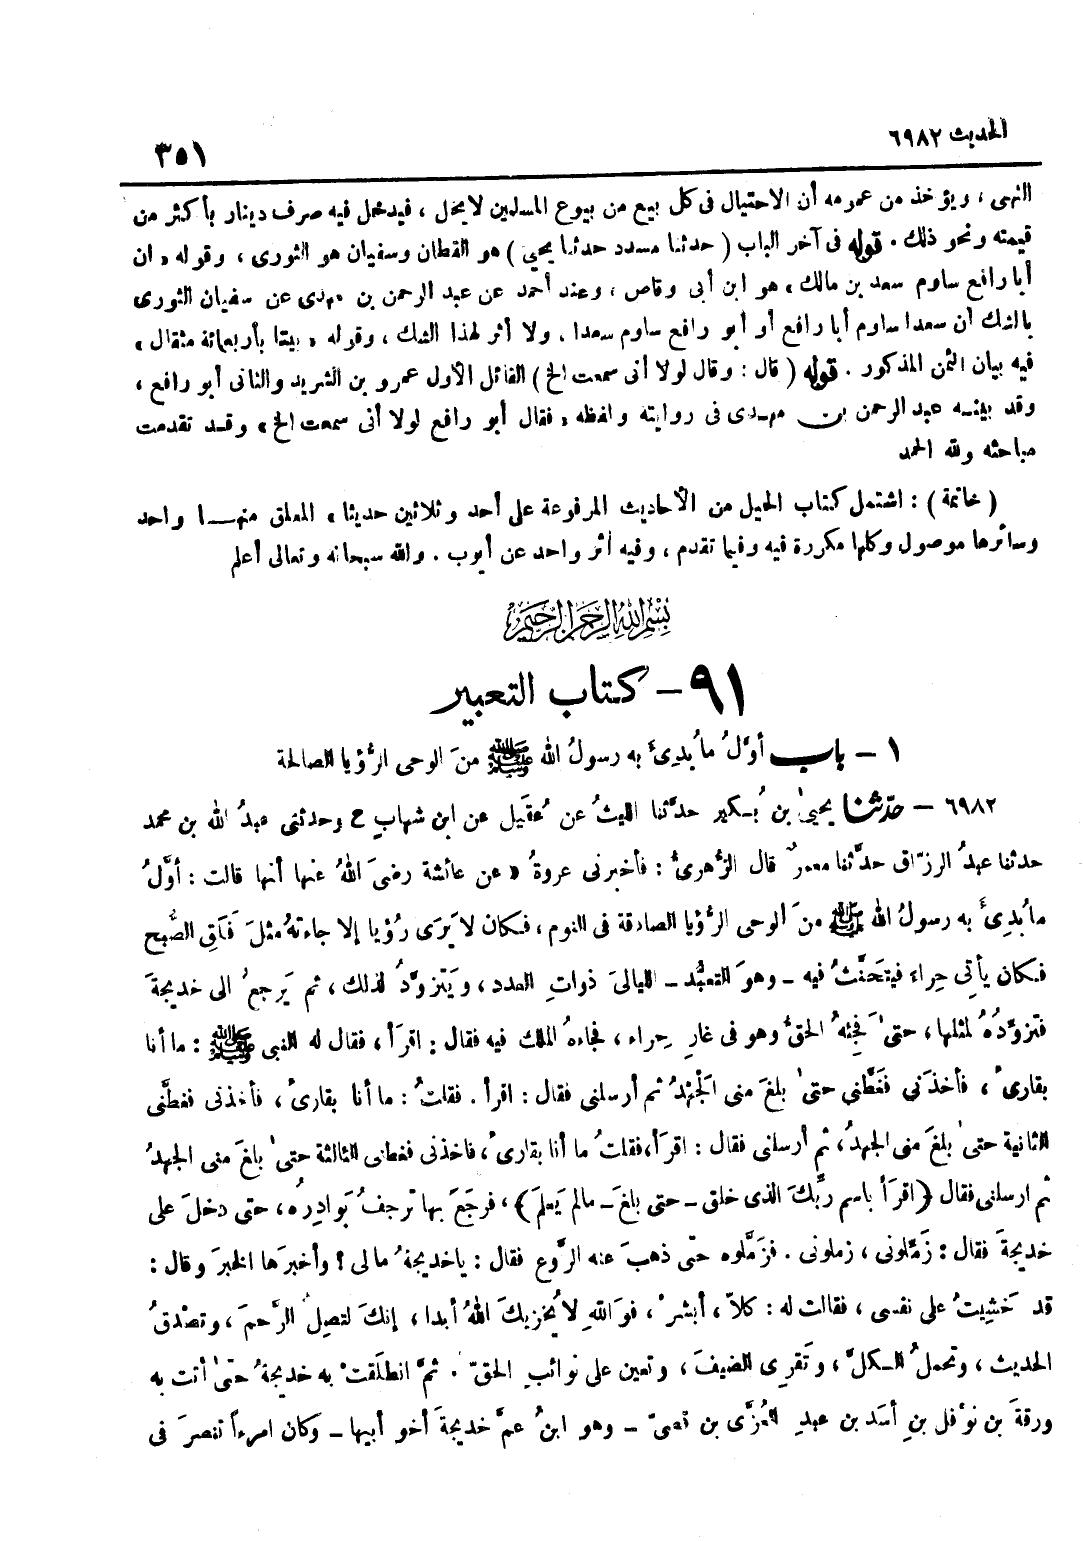 الحديث ٦٩٨٢
٣٥١
النهى ، ويؤخذ من عمومه أن الاحتيال فى كل بيع من بيوع المسلمين لايحل ، فيدخل فيه صرف دينار بأكثر من
قيمته ونحو ذلك . قوله فى آخر الباب ( حدثنا مسدد حدثنا يحيى ) هو القطان وسفيان هو الثورى ، وقوله « ان
أبا رافع ساوم سعد بن مالك » هو ابن أبى وقاص ، وعند أحمد عن عبد الرحمن بن مهدى عن سفيان الثورى
بالشك أن سعدا ساوم أبا رافع أو أبو رافع ساوم سعدا . ولا أثر لهذا الشك ، وقوله « بيتا بأربعمائة مثقال »
فيه بيان الثمن المذكور . قوله ( قال : وقال لولا أنى سمعت الخ ) القائل الأول عمرو بن الشريد والثانى أبو رافع ،
وقد بينـه عبد الرحمن بن مهـدى فى روايته ولفظه « فقال أبو رافع لولا أنى سمعت الخ » وقـد تقدمت
مباحثه ولله الحمد
( خاتمة ) : اشتمل كتاب الحيل من الأحاديث المرفوعة على أحد وثلاثين حديثا ، المعلق منهـا واحد
وسائرها موصول وكلها مكررة فيه وفيما تقدم ، وفيه أثر واحد عن أيوب . والله سبحانه وتعالى أعلم
بِسْمِ اللهِ الرَّحْمٰنِ الرَّحِيمِ
٩١ - كتاب التعبير
١ - باب أوَّلُ ما بُدِىءَ به رسولُ الله ﷺ منَ الوحى الرُّؤيا الصالحة
٦٩٨٢ - حدّثنا يحيىٰ بن بُـكير حدَّثنا الليثُ عن عُقَيل عن ابن شهابٍ ح وحدثنى عبدُ الله بن محمد
حدثنا عبدُ الرزّاق حدَّثنا معمرٌ قال الزُّهرىُّ : فأخبرنى عروةُ « عن عائشة رضىَ اللهُ عنها أنها قالت : أوَّلُ
ما بُدِىءَ به رسولُ الله ﷺ منَ الوحى الرُّؤيا الصادقة فى النوم ، فـكان لا يَرَى رُؤيا إلا جاءته مثلَ فَلَقِ الصُّبح
فـكان يأتى حِراءَ فيتحَنَّثُ فيه - وهوَ التعبُّد - الليالىَ ذواتِ العدد ، ويَتزوَّدُ لذلك ، ثم يَرجعُ الى خديجةَ
فتزوِّدُهُ لمثلها ، حتىٰ فَجِئَهُ الحقُّ وهو فى غارِ حِراء ، فجاءهُ الملك فيه فقال : اقرَأ ، فقال له النبى ﷺ : ما أنا
بقارئ ، فأخذَنى فغَطَّنى حتىٰ بلغَ منى الجَهْدُ ثم أرسلنى فقال : اقرأ . فقلتُ : ما أنا بقارئ ، فأخذنى فغطَّنى
الثانية حتىٰ بلغَ منى الجهدُ ، ثم أرسلنى فقال : اقرَأ ، فقلتُ ما أنا بقارئ ، فاخذنى فغطنى الثالثة حتىٰ بلغَ منى الجهدُ
ثم ارسلنى فقال ﴿ اقرَأ باسم ربِّكَ الذى خلق - حتى بلغَ - مالم يَعلم ﴾ ، فرجَعَ بها ترجفُ بَوادِرُه ، حتى دخلَ على
خديجةَ فقال : زَمِّلونى ، زملونى . فزمَّلوه حتّى ذهبَ عنه الرَّوع فقال : ياخديجةُ مالى ؟ وأخبرَها الخبرَ وقال :
قد خَشِيتُ على نفسى ، فقالت له : كلاّ ، أبشرْ ، فوَاللهِ لا يُخزيكَ اللهُ أبدا ، إنكَ لتصِلُ الرَّحمَ ، وتصْدُقُ
الحديث ، وتحملُ الـكلَّ ، وتَقرى الضيفَ ، وتعين على نوائبِ الحقّ . ثمَّ انطلَقتْ به خديجةُ حتىٰ أتت به
ورقةَ بن نَوْفل بنِ أسَد بن عبدِ العُزَّى بن قصىّ - وهو ابنُ عمِّ خديجةَ أخو أبيها - وكان امرءاً تنصرَ فى